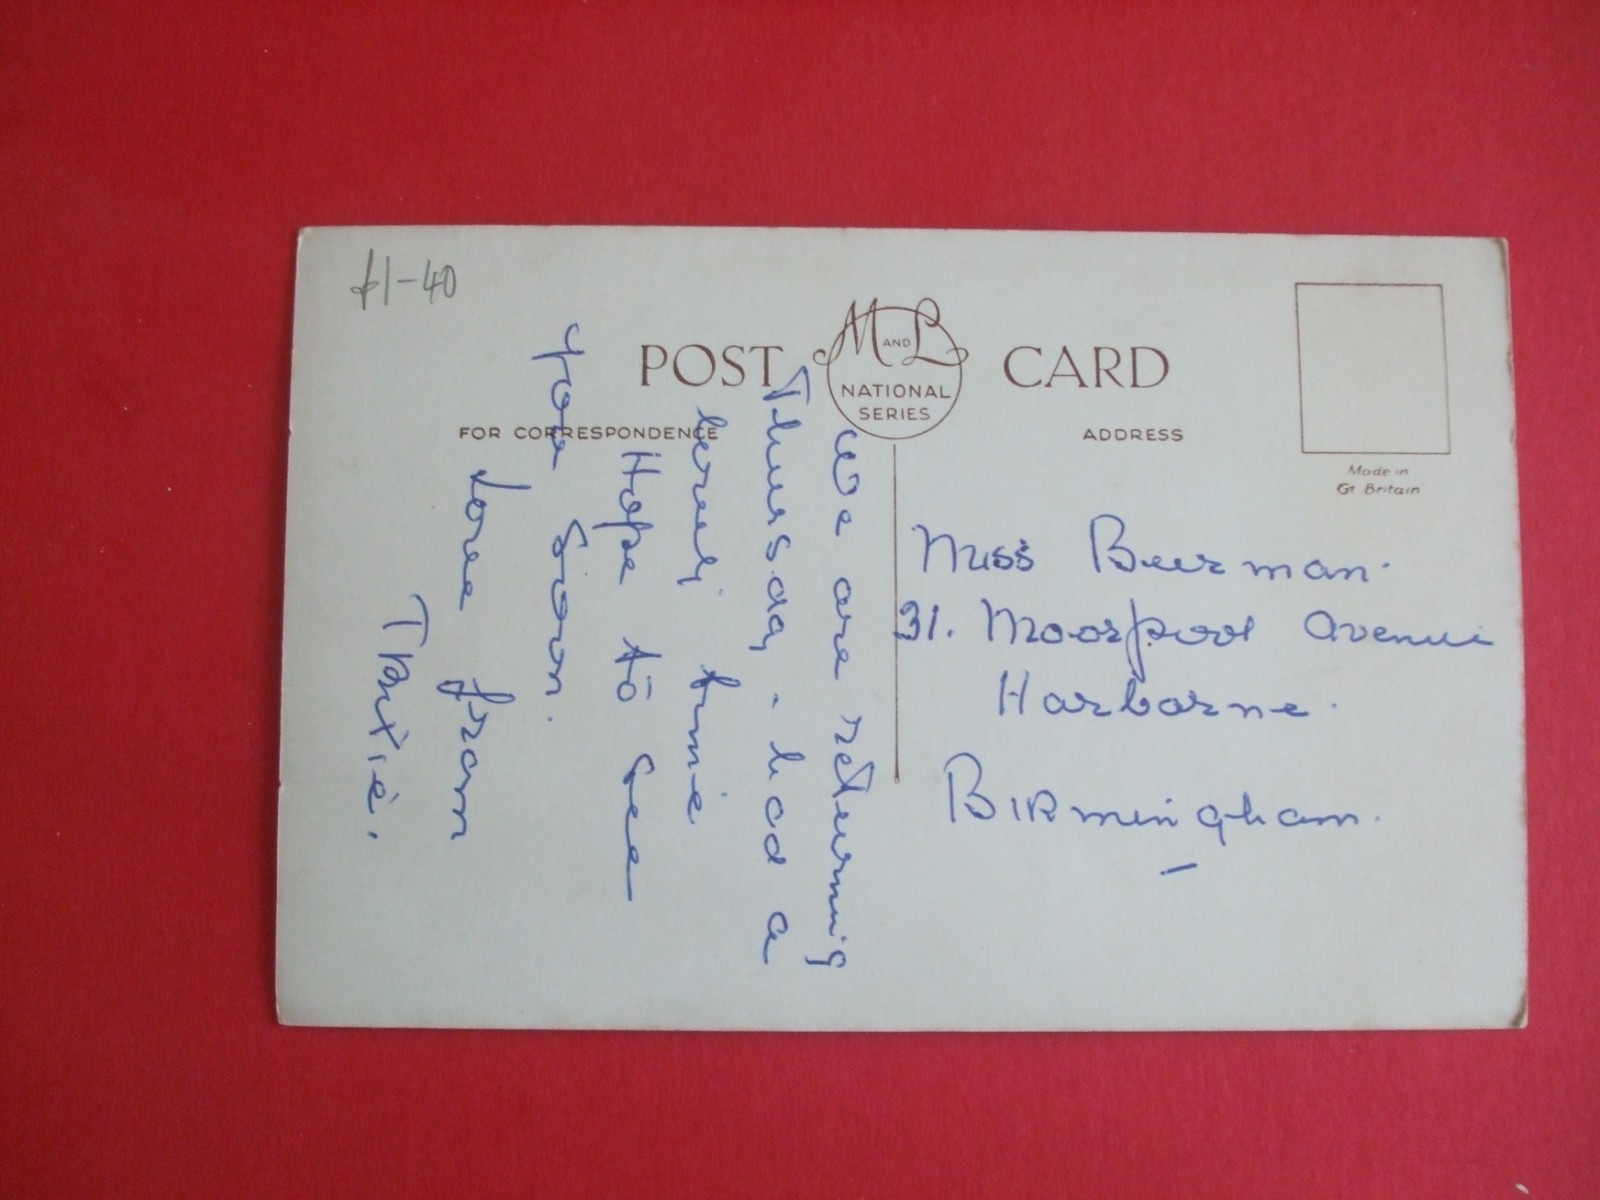 £1-40
POST CARD
M AND L
NATIONAL
SERIES
FOR CORRESPONDENCE
ADDRESS
Made in
Gt Britain
We are returning
Thursday - had a
time
Hope to see
you soon.
Love from
Trixie.
Miss Beerman.
31. Moorpool Avenue
Harborne.
Birmingham.